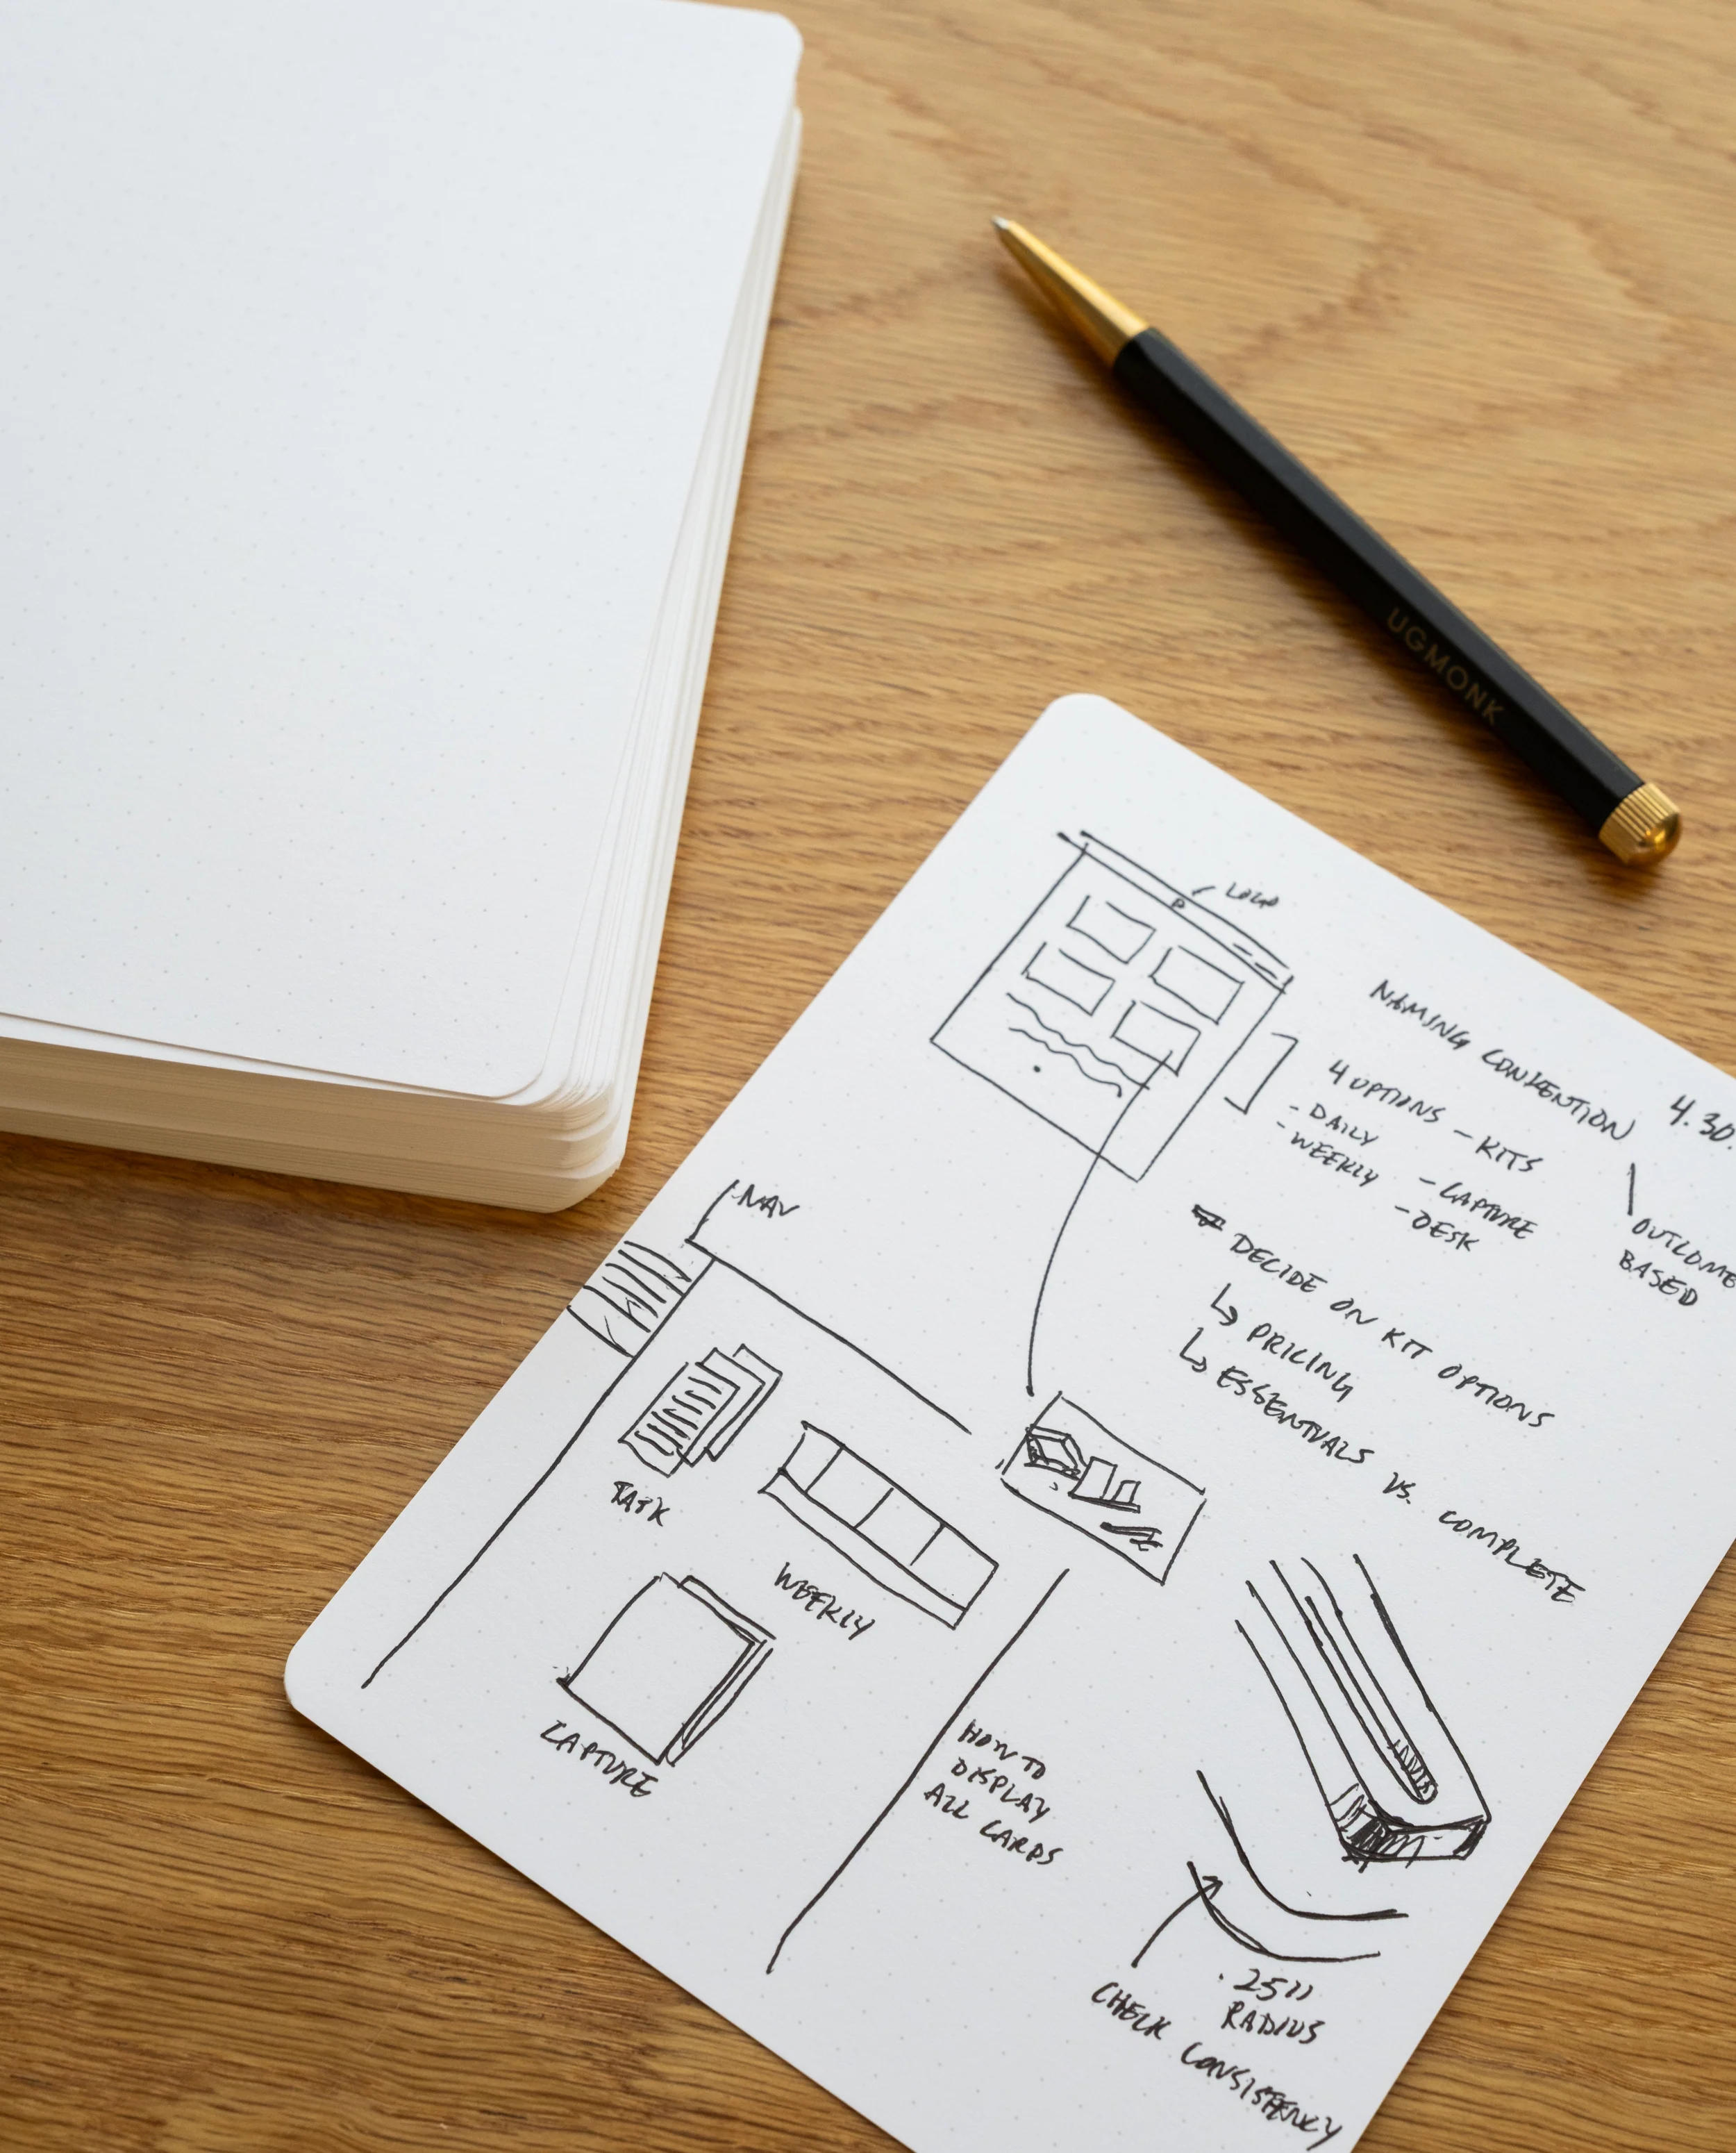 UGMONK
LOGO
NAMING CONVENTION
4.30.
4 OPTIONS - KITS
- DAILY
- WEEKLY
- CAPTURE
- DESK
OUTCOME
BASED
DECIDE ON KIT OPTIONS
↳ PRICING
↳ ESSENTIALS VS. COMPLETE
NAV
TASK
WEEKLY
CAPTURE
HOW TO
DISPLAY
ALL CARDS
.25"
RADIUS
CHECK CONSISTENCY